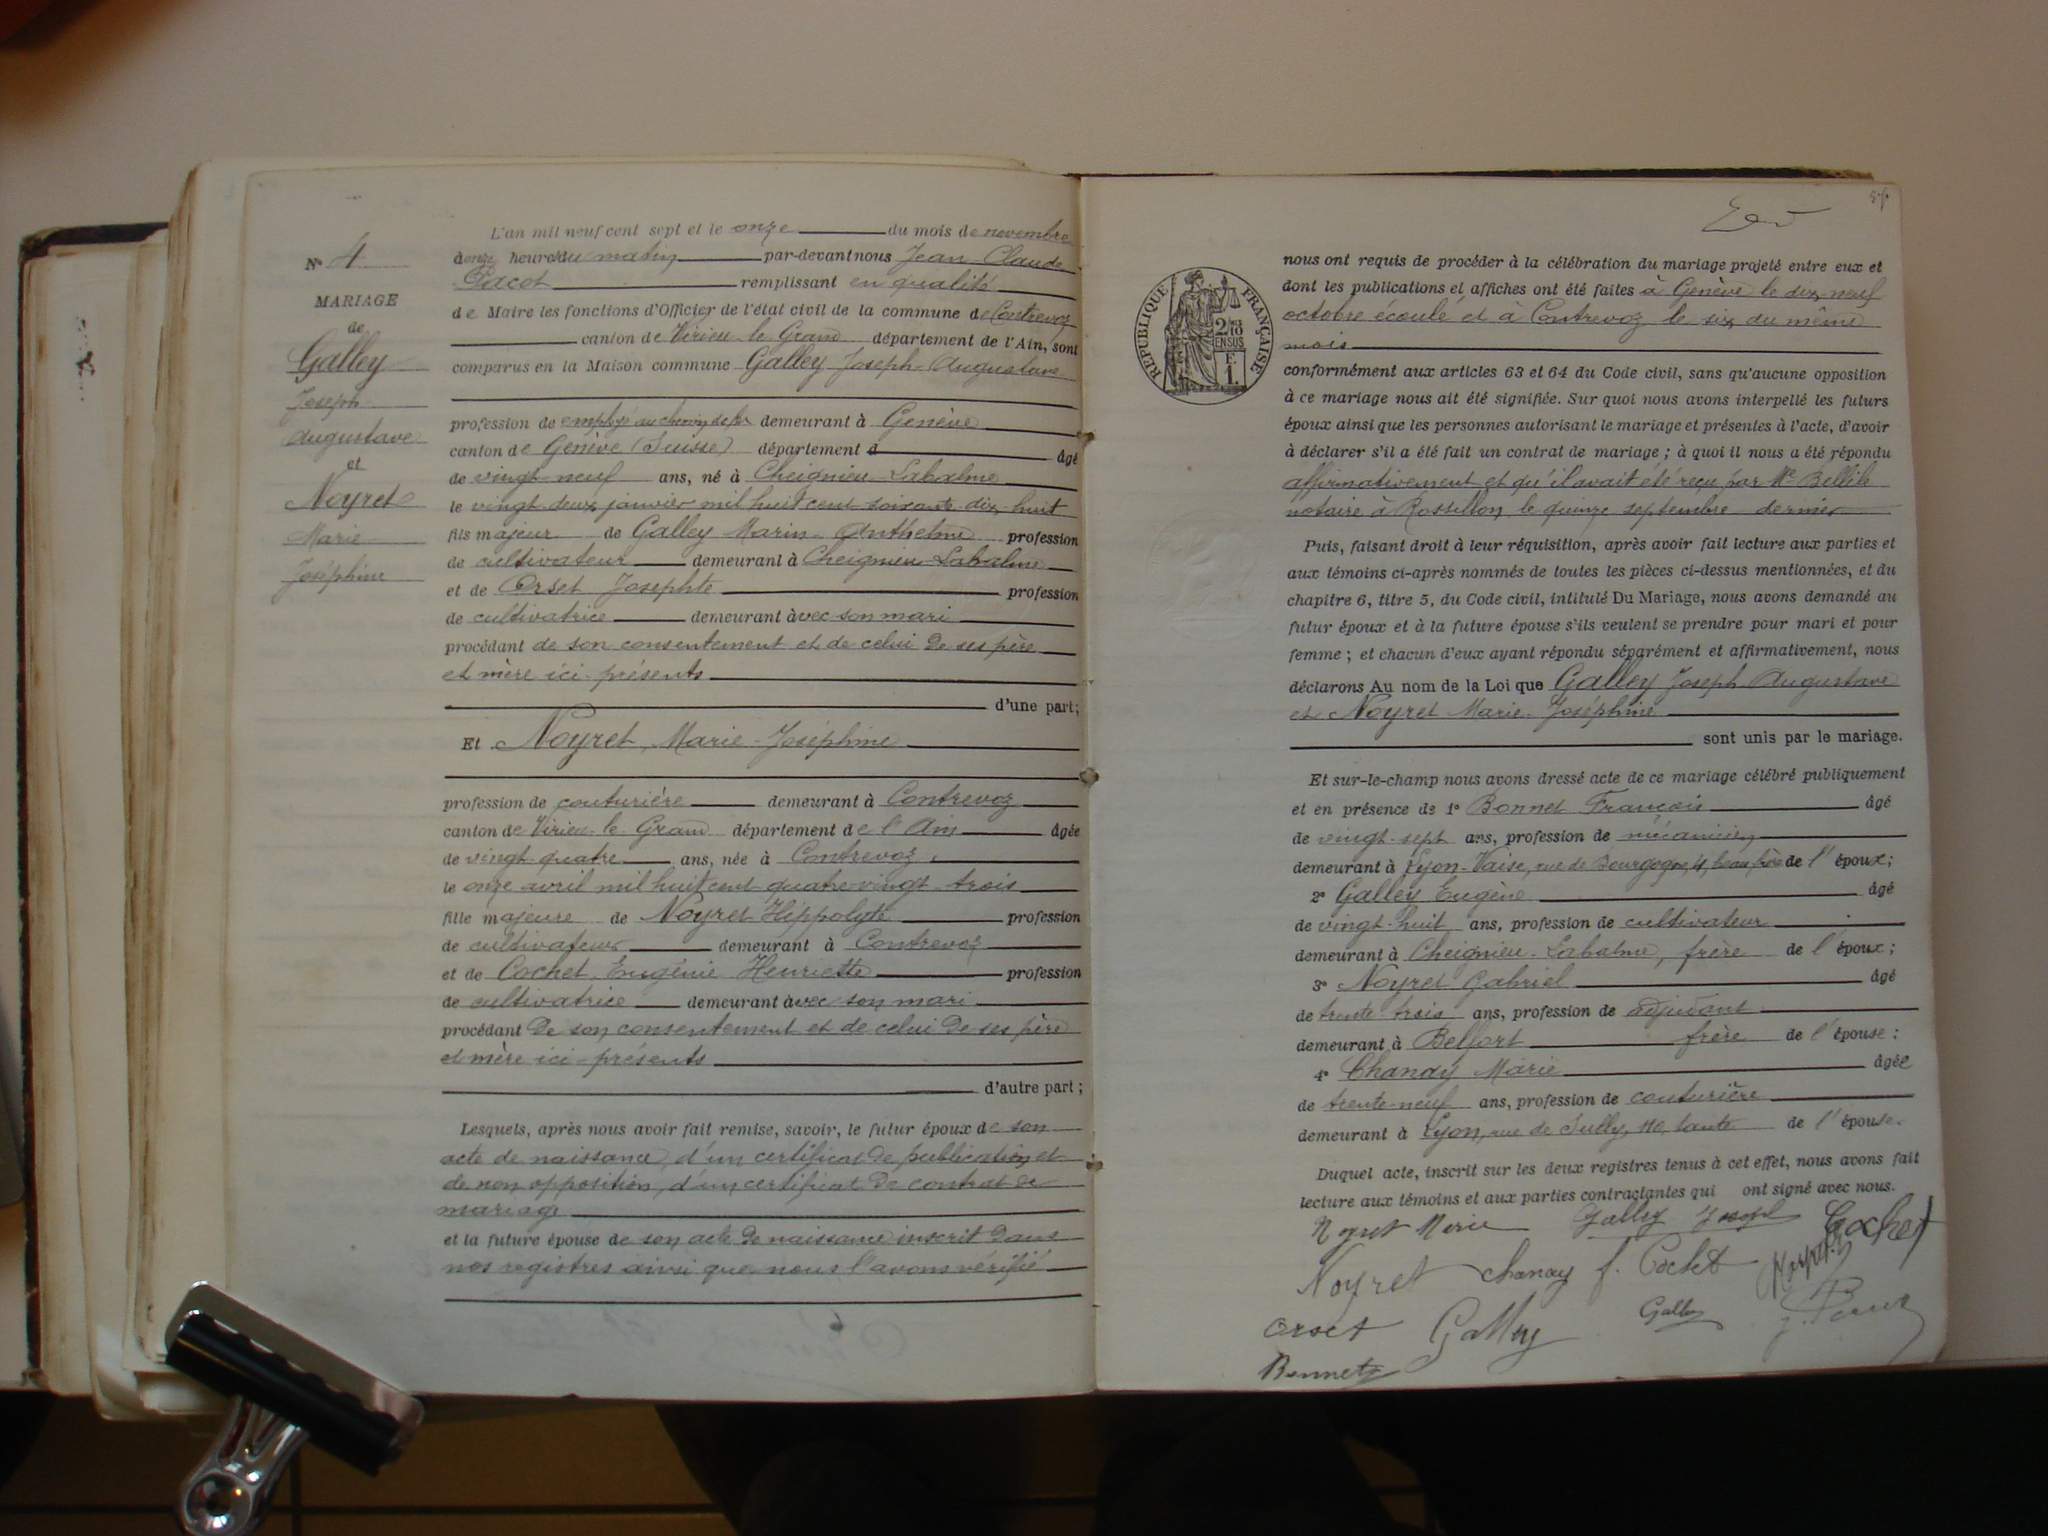 N° 4
MARIAGE
de
Galley
Joseph
Augustave
et
Noyret
Marie
Joséphine
L'an mil neuf cent sept et le onze du mois de novembre
à onze heures du matin par-devant nous Jean Claude
Pacot remplissant en qualité
de Maire les fonctions d'Officier de l'état civil de la commune de Contrevoz
canton de Virieu-le-Grand département de l'Ain, sont
comparus en la Maison commune Galley Joseph-Augustave
profession de employé au chemin de fer demeurant à Genève
canton de Genève (Suisse) département d âgé
de vingt-neuf ans, né à Cheignieu-Labalme
le vingt-deux janvier mil huit cent soixante-dix-huit
fils majeur de Galley Marin-Anthelme profession
de cultivateur demeurant à Cheignieu-Labalme
et de Orset Josephte profession
de cultivatrice demeurant avec son mari
procédant de son consentement et de celui de ses père
et mère ici-présents
d'une part;
Et Noyret Marie-Joséphine
profession de couturière demeurant à Contrevoz
canton de Virieu-le-Grand département de l'Ain âgée
de vingt-quatre ans, née à Contrevoz
le onze avril mil huit cent quatre-vingt-trois
fille majeure de Noyret Hippolyte profession
de cultivateur demeurant à Contrevoz
et de Cochet Eugénie Henriette profession
de cultivatrice demeurant avec son mari
procédant de son consentement et de celui de ses père
et mère ici-présents
d'autre part;
Lesquels, après nous avoir fait remise, savoir, le futur époux de son
acte de naissance, d'un certificat de publication et
de non opposition, d'un certificat de contrat de
mariage
et la future épouse de son acte de naissance inscrit dans
nos registres ainsi que nous l'avons vérifié
RÉPUBLIQUE FRANÇAISE
nous ont requis de procéder à la célébration du mariage projeté entre eux et
dont les publications et affiches ont été faites à Genève le dix-neuf
octobre écoulé et à Contrevoz le six du même
mois
conformément aux articles 63 et 64 du Code civil, sans qu'aucune opposition
à ce mariage nous ait été signifiée. Sur quoi nous avons interpellé les futurs
époux ainsi que les personnes autorisant le mariage et présentes à l'acte, d'avoir
à déclarer s'il a été fait un contrat de mariage; à quoi il nous a été répondu
affirmativement et qu'il avait été reçu par Me Bellile
notaire à Rossillon le quinze septembre dernier
Puis, faisant droit à leur réquisition, après avoir fait lecture aux parties et
aux témoins ci-après nommés de toutes les pièces ci-dessus mentionnées, et du
chapitre 6, titre 5, du Code civil, intitulé Du Mariage, nous avons demandé au
futur époux et à la future épouse s'ils veulent se prendre pour mari et pour
femme; et chacun d'eux ayant répondu séparément et affirmativement, nous
déclarons Au nom de la Loi que Galley Joseph-Augustave
et Noyret Marie-Joséphine
sont unis par le mariage.
Et sur-le-champ nous avons dressé acte de ce mariage célébré publiquement
et en présence de 1° Bonnet François âgé
de vingt-sept ans, profession de mécanicien
demeurant à Lyon-Vaise, rue de Bourgogne, 4, beau-frère de l'époux;
2° Galley Eugène âgé
de vingt-huit ans, profession de cultivateur
demeurant à Cheignieu-Labalme, frère de l'époux;
3° Noyret Gabriel âgé
de trente-trois ans, profession de adjudant
demeurant à Belfort frère de l'épouse;
4° Chanay Marie âgée
de trente-neuf ans, profession de couturière
demeurant à Lyon, rue de Sully, 110, tante de l'épouse.
Duquel acte, inscrit sur les deux registres tenus à cet effet, nous avons fait
lecture aux témoins et aux parties contractantes qui ont signé avec nous.
Noyret Marie Galley Joseph Cochet
Noyret Chanay f. Cochet Noyret
Orset Galley Galley
Bonnet